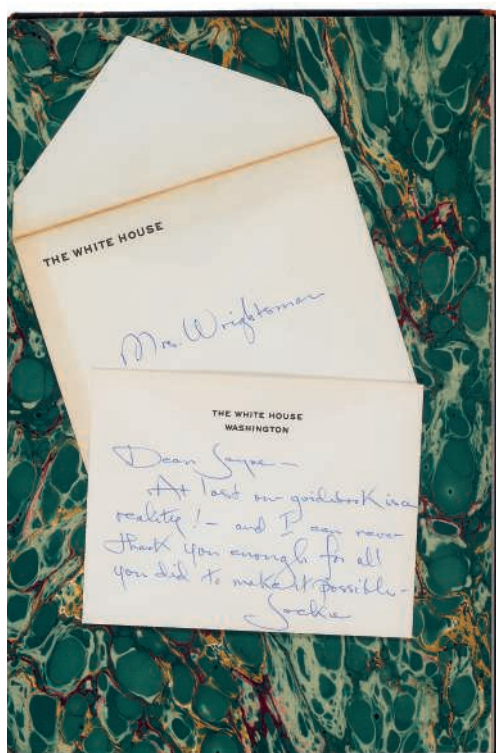 THE WHITE HOUSE
Mrs. Wrightsman
THE WHITE HOUSE
WASHINGTON
Dear Jayne –
At last our guidebook is a
reality! – and I can never
thank you enough for all
you did to make it possible –
Jackie